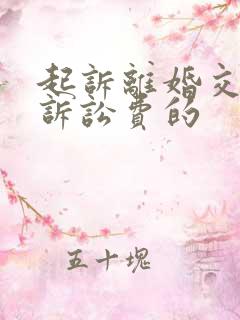 起訴離婚交
訴訟費的
五十塊